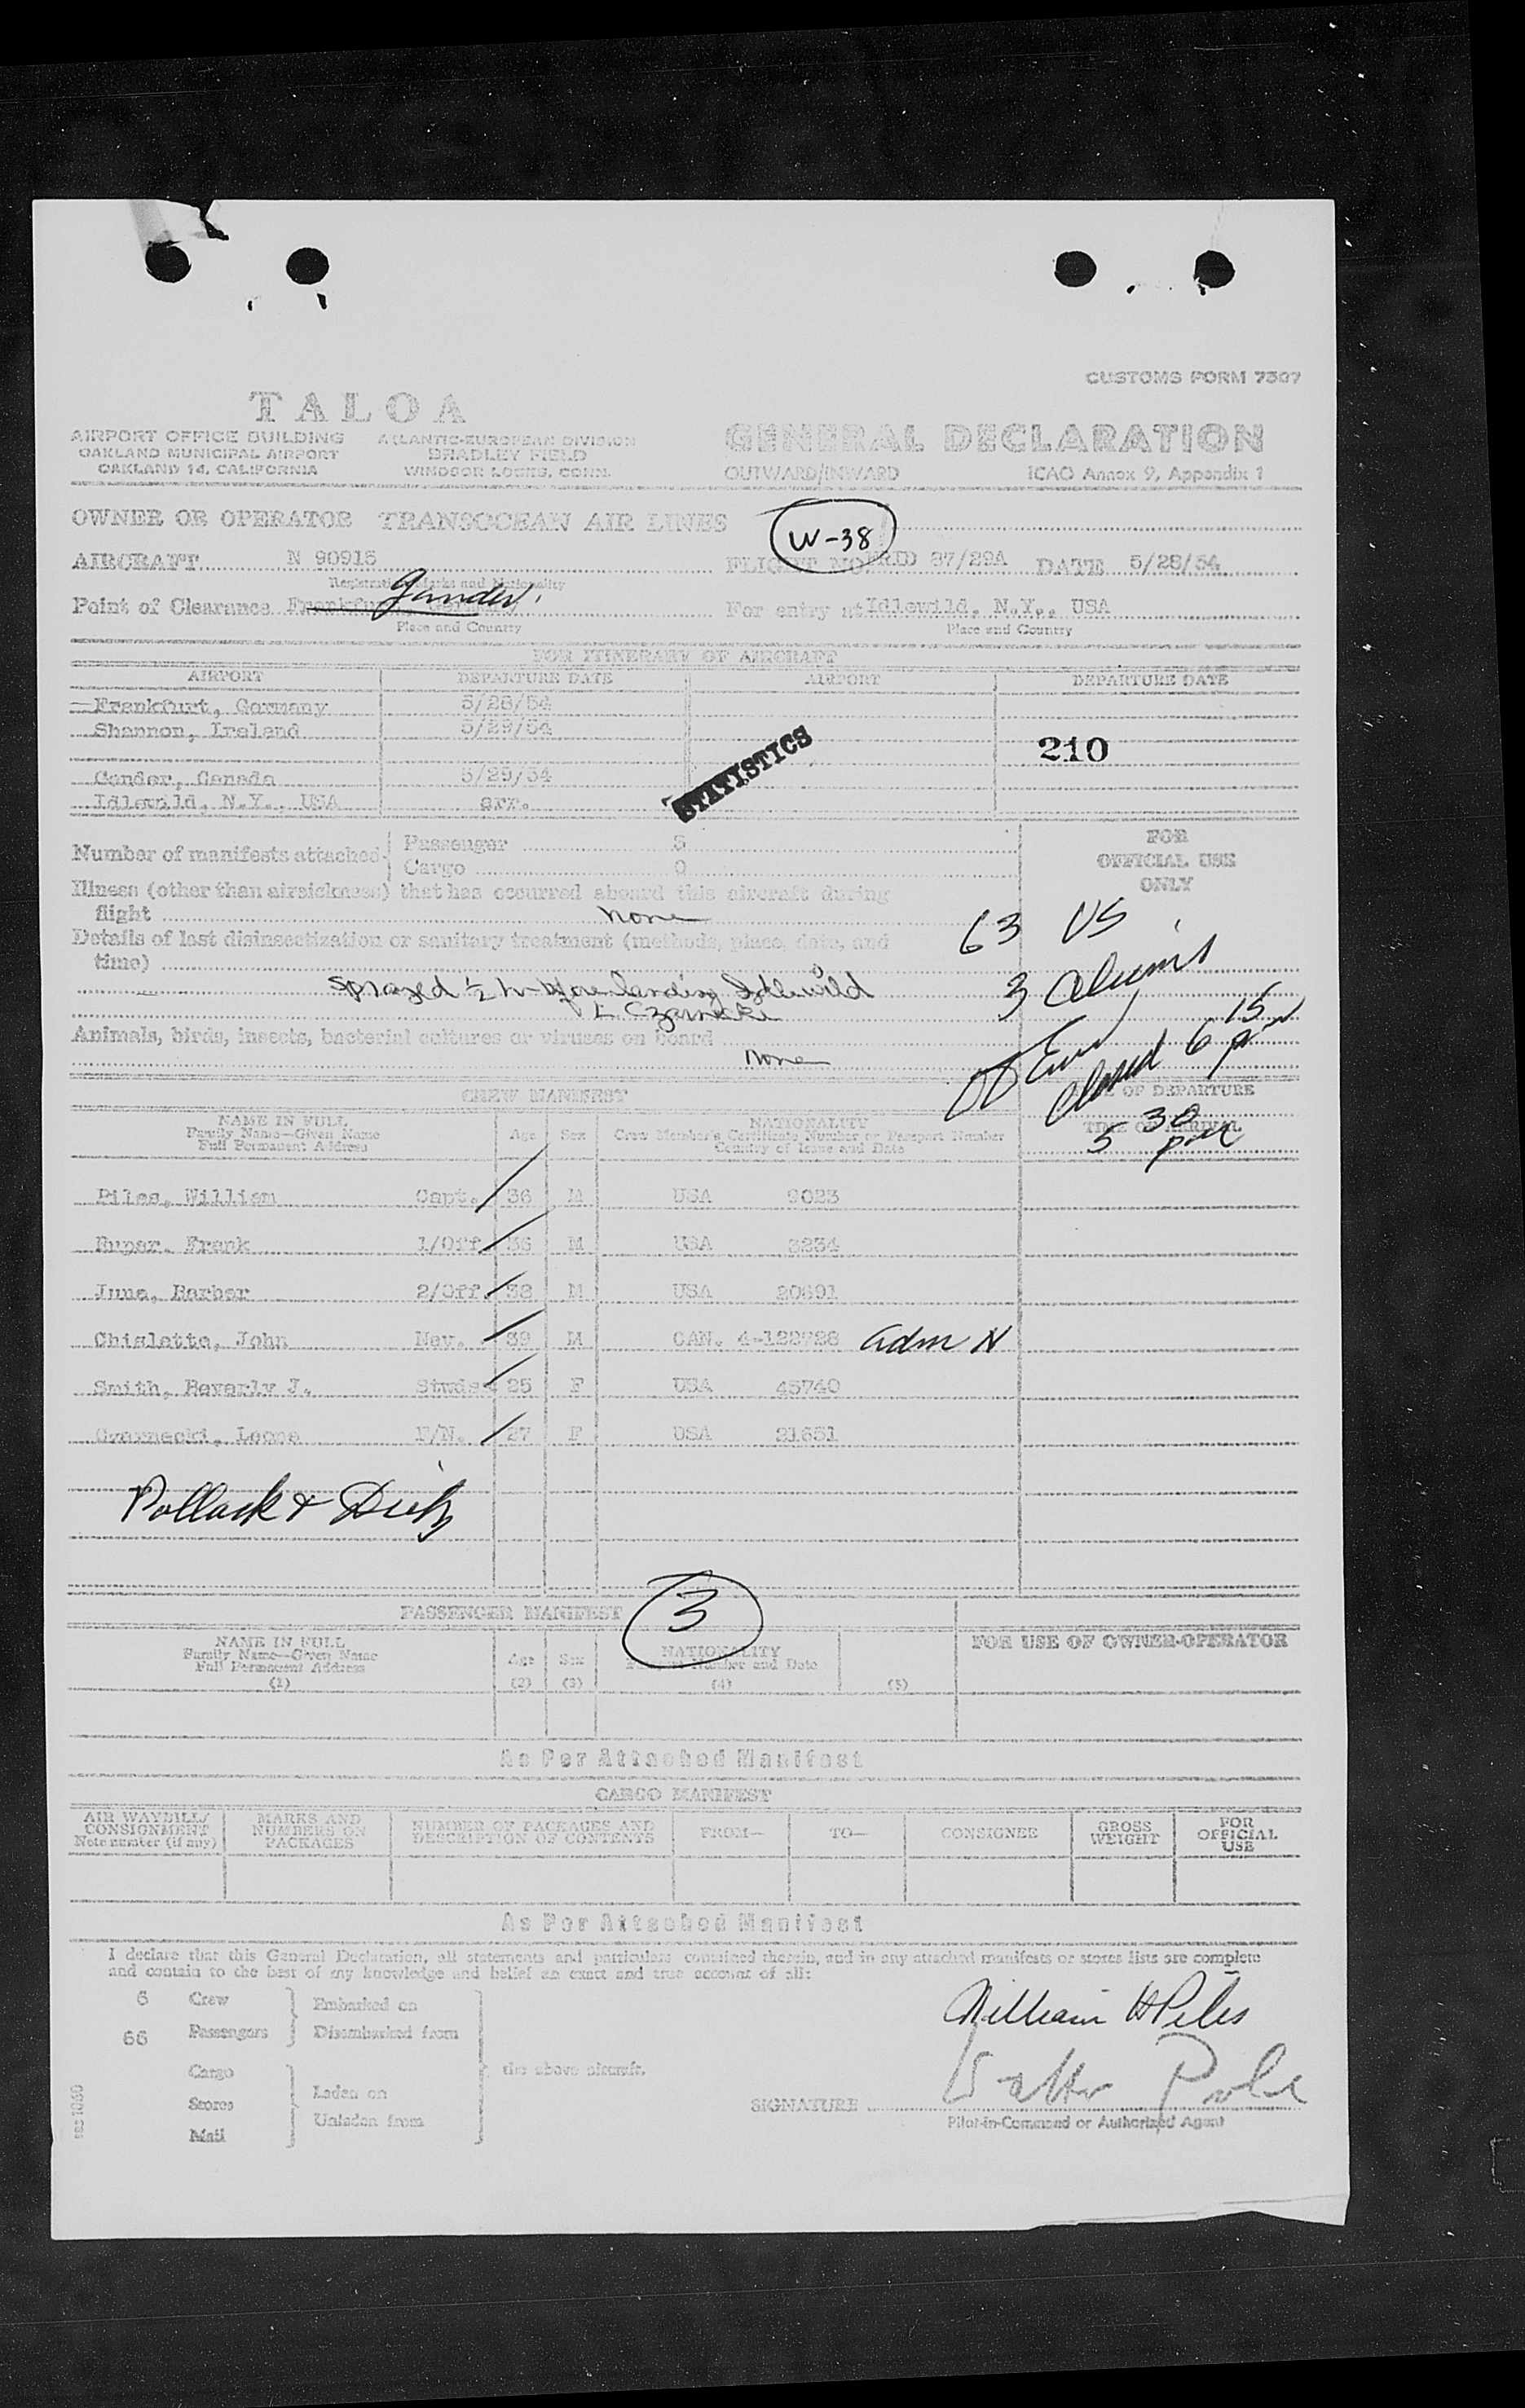 CUSTOMS FORM 7507
TALOA
AIRPORT OFFICE BUILDING
OAKLAND MUNICIPAL AIRPORT
OAKLAND 14, CALIFORNIA
ATLANTIC-EUROPEAN DIVISION
BRADLEY FIELD
WINDSOR LOCKS, CONN.
GENERAL DECLARATION
OUTWARD/INWARD ICAO Annex 9, Appendix 1
OWNER OR OPERATOR TRANSOCEAN AIR LINES
W-38
AIRCRAFT N 90915 FLIGHT NO. 37/29A DATE 5/28/54
Registration Marks and Nationality
Point of Clearance Frankfurt, Germany Gander. For entry at Idlewild, N.Y., USA
Place and Country Place and Country
FOR ITINERARY OF AIRCRAFT
AIRPORT DEPARTURE DATE AIRPORT DEPARTURE DATE
Frankfurt, Germany 5/28/54
Shannon, Ireland 5/29/54
STATISTICS
210
Gander, Canada 5/29/54
Idlewild, N.Y., USA arr.
Number of manifests attached
Passenger 5
Cargo 0
FOR
OFFICIAL USE
ONLY
Illness (other than airsickness) that has occurred aboard this aircraft during
flight none
63 US
Details of last disinsectization or sanitary treatment (methods, place, date, and
time)
sprayed ½ hr before landing Idlewild
L Czarnecki
3 Aliens
Closed 6 15 pm
Animals, birds, insects, bacterial cultures or viruses on board
none
CREW MANIFEST
TIME OF DEPARTURE
TIME OF ARRIVAL
5 30 pm
NAME IN FULL
Family Name—Given Name
Full Permanent Address
Age Sex
NATIONALITY
Crew Member's Certificate Number or Passport Number
Country of Issue and Date
Piles, William Capt. 36 M USA 9023
Ruper, Frank 1/Off. 36 M USA 3234
June, Barber 2/Off. 38 M USA 20691
Chislette, John Nav. 39 M CAN. 4-122728 Adm N
Smith, Beverly J. Stwds. 25 F USA 45740
Czarnecki, Leona F/N. 27 F USA 21651
Pollack &
3
PASSENGER MANIFEST
NAME IN FULL
Family Name—Given Name
Full Permanent Address
(1)
Age
(2)
Sex
(3)
NATIONALITY
Passport Number and Date
(4)
(5)
FOR USE OF OWNER-OPERATOR
As Per Attached Manifest
CARGO MANIFEST
AIR WAYBILL/
CONSIGNMENT
Note number (if any)
MARKS AND
NUMBERS ON
PACKAGES
NUMBER OF PACKAGES AND
DESCRIPTION OF CONTENTS
FROM—
TO—
CONSIGNEE
GROSS
WEIGHT
FOR
OFFICIAL
USE
As Per Attached Manifest
I declare that this General Declaration, all statements and particulars contained therein, and in any attached manifests or stores lists are complete
and contain to the best of my knowledge and belief an exact and true account of all:
6 Crew
66 Passengers
Embarked on
Disembarked from
Cargo
Stores
Mail
Laden on
Unladen from
the above aircraft.
William H Piles
SIGNATURE
Pilot-in-Command or Authorized Agent